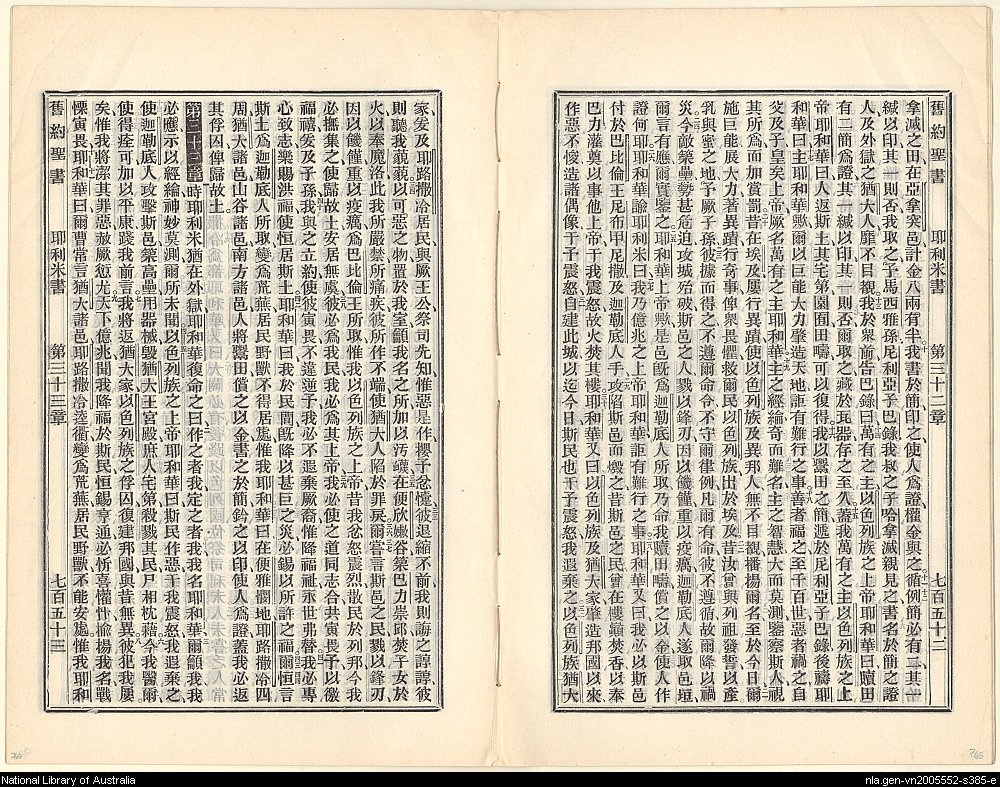 舊約聖書 耶利米書 第三十二章 七百五十二
拿滅之田在亞拿突邑計金八兩有半我書於簡印之使人爲證權金與之循例簡必有二其一
緘以印其一則否我取之予馬西雅孫尼利亞子巴錄我叔之子哈拿滅親見之書名於簡之證
人及外獄之猶大人靡不目覩我於眾前告巴錄曰萬有之主以色列族之上帝耶和華曰贖田
有二簡爲證其一緘以印其一則否爾取之藏於瓦器存之至久蓋我萬有之主以色列族之上
帝耶和華曰人返斯土其宅第園囿田疇可以復得我以鬻田之簡遞於尼利亞子巴錄後禱耶
和華曰主耶和華歟爾以巨能大力肇造天地詎有難行之事善者福之至千百世惡者禍之自
父及子皇矣上帝厥名萬有之主耶和華主之經綸奇而難名主之智慧大而莫測鑒察斯人視
其所爲而加賞罰昔在埃及屢行異蹟使以色列族及異邦人無不目覩播揚爾名至於今日爾
施巨能展大力著異蹟行奇事俾眾畏懼救爾民以色列族出於埃及昔汝曾與列祖發誓以產
乳與蜜之地予厥子孫彼據而得之不遵爾命令不守爾律例凡爾有命彼不遵循故爾降以禍
災今敵築壘勢甚危迫攻城殆破斯邑之人戮以鋒刃因以饑饉重以疫癘迦勒底人遂取斯邑垣
爾言有應爾實鑒之耶和華上帝歟是邑旣爲迦勒底人所取乃命我贖田疇償之以金使人作
證何歟耶和華諭耶利米曰我乃億兆之上帝耶和華詎有難行之事耶和華又曰我必以斯邑
付於巴比倫王尼布甲尼撒及迦勒底人手攻陷斯邑而燬之昔斯邑之民曾在樓巔焚香以奉
巴力灌奠以事他上帝干我震怒故火焚其樓耶和華又曰以色列族及猶大家肇造邦國以來
作惡不悛造諸偶像干予震怒自建此城以迄今日斯民也干予震怒我遐棄之以色列族猶大
家爰及耶路撒冷居民與厥王公祭司先知惟惡是作攖予忿懥彼退縮不前我則誨之諄諄彼
則聽我藐藐以可惡之物置於我室顧我名之所加以汚衊在便欣嫩谷築巴力崇邱焚子女於
火以奉魔洛此我所嚴禁所痛疾彼所作不端使猶大人陷於罪戾爾嘗言斯邑之民戮以鋒刃
因以饑饉重以疫癘爲巴比倫王所取惟我以色列族之上帝昔我忿怒震烈散民於列邦今我
必撫集之使歸故土安居無虞彼必爲我民我必爲其上帝我必使之道同志合共寅畏予以徼
福禧爰及子孫我與之立約使彼寅畏不違逆予我必不遐棄厥裔惟降福祉永世弗替我必專
心致志樂賜洪福使恒居斯土耶和華曰我於民間旣降以甚巨之災必錫以所許之福爾恒言
斯土爲迦勒底人所取變爲荒蕪居民野獸不得居處惟我耶和華曰在便雅憫地耶路撒冷四
周猶大諸邑山谷諸邑南方諸邑人將鬻田償之以金書之於簡鈐之以印使人爲證蓋我必返
其俘囚俾歸故土
第三十三章 時耶利米猶在外獄耶和華復命之曰作之者我定之者我我名耶和華爾籲我我
必應示以經綸神妙莫測爾所未聞以色列族之上帝耶和華曰斯民作惡干我震怒我遐棄之
使迦勒底人攻擊斯邑築高壘用器械毀猶大王宮殿庶人宅第殺戮其民尸相枕藉今我醫爾
使得痊可加以平康踐我前言我將返猶大家以色列族之俘囚復建邦國與昔無異彼犯我屢
矣惟我將潔其罪惡赦厥愆尤天下億兆聞我降福於斯民恒錫亨通必忻喜懽忭揄揚我名戰
慄寅畏耶和華曰爾曹常言猶大諸邑耶路撒冷逵衢變爲荒蕪居民野獸不能安處惟我耶和
舊約聖書 耶利米書 第三十三章 七百五十三
765
National Library of Australia
nla.gen-vn2005552-s385-e